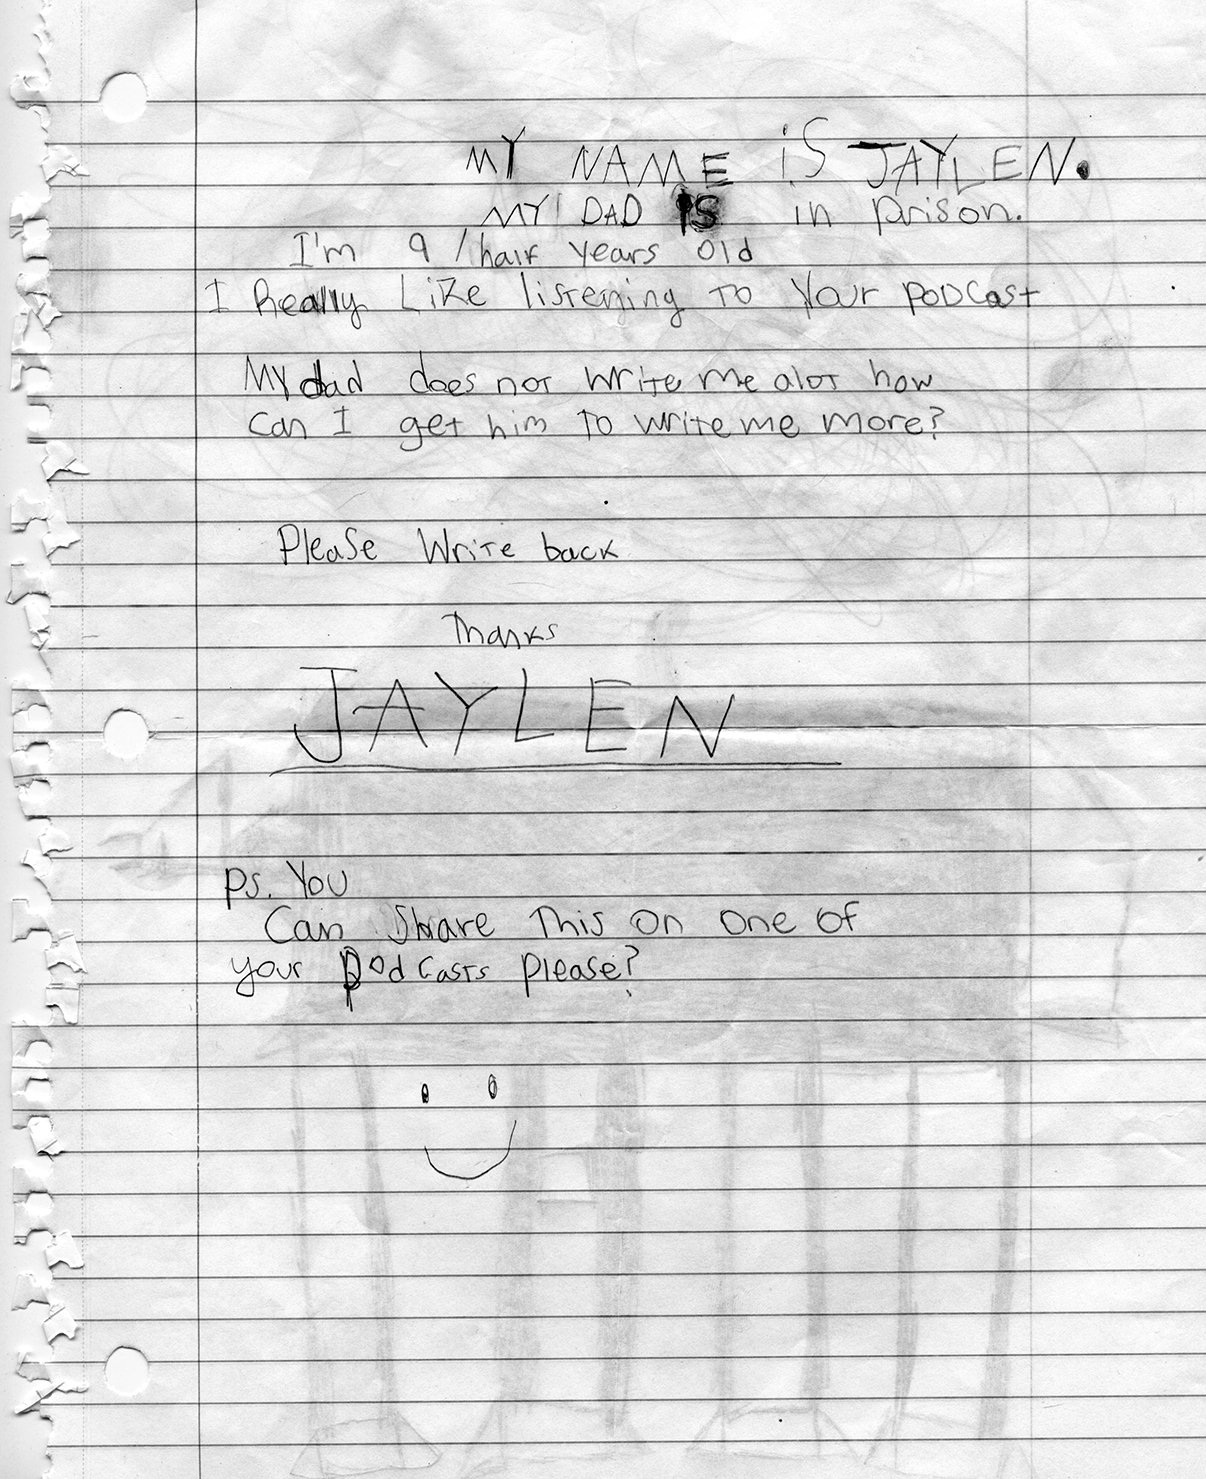 MY NAME iS JAYLEN.
MY DAD IS in prison.
I'm 9 /half years old
I Really LiKe listening TO Your PODCast
MY dad does not write me alot how
can I get him to write me more?
Please Write back
Thanks
JAYLEN
PS. You
Can Share This on one of
your PodCasts please?